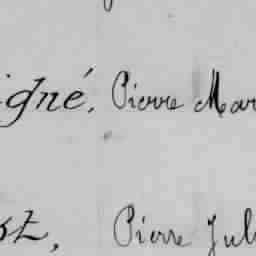 igné, Pierre Mar
st, Pierre Jul